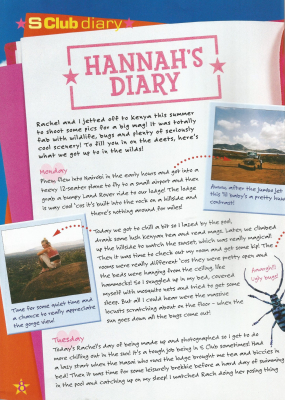 S Club diary
HANNAH'S
DIARY
Rachel and I jetted off to Kenya this summer
to shoot some pics for a big mag! It was totally
fab with wildlife, bugs and plenty of seriously
cool scenery! To fill you in on the deets, here's
what we got up to in the wilds!
Monday
Phew, flew into Nairobi in the early hours and got into a
teeny 12-seater plane to fly to a small airport and then
grab a bumpy Land Rover ride to our lodge! The lodge
is way cool 'cos it's built into the rock on a hillside and
there's nothing around for miles!
after the Jumbo Jet
this 'lil baby's a pretty
contrast!
Today we got to chill a bit so I lazed by the pool,
drank some lush Kenyan tea and read mags. Later, we climbed
up the hillside to watch the sunset, which was really magical.
Then it was time to check out my room and get some kip! The
rooms were really different 'cos they were pretty open and
the beds were hanging from the ceiling, like
hammocks! So I snuggled up in my bed, covered
myself with mosquito nets and tried to get some
sleep. But all I could hear were the massive
locusts scratching about on the floor - when the
sun goes down all the bugs come out!
Time for some quiet time and
a chance to really appreciate
the gorge view!
Aaargh!
Ugly bugs!
Tuesday
Today's Rachel's day of being made up and photographed so I get to do
more chilling out in the sun! It's a tough job being in S Club sometimes! Had
a lazy start when the Masai who run the lodge brought me tea and biccies in
bed! Then it was time for some leisurely brekkie before a hard day of swimming
in the pool and catching up on my sleep! I watched Rach doing her posing thing